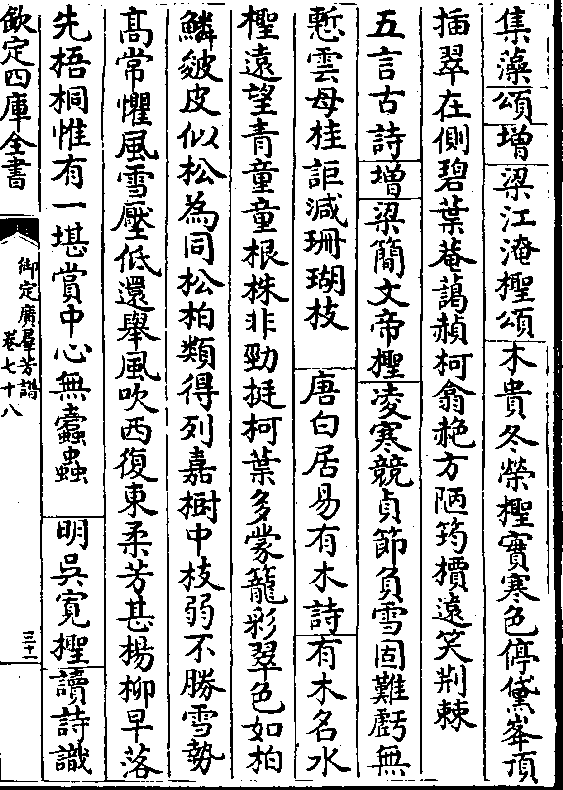 集藻頌增梁江淹檉頌木貴冬榮檉實寒色停黛峯頂
插翠在側碧葉菴藹赪柯翕赩方陋筠檟遠笑荆棘
五言古詩增梁簡文帝檉凌寒競貞節負雪固難虧無
慙雲母桂詎減珊瑚枝 唐白居易有木詩有木名水
檉遠望青童童根株非勁挺柯葉多蒙籠彩翠色如柏
鱗皴皮似松為同松柏類得列嘉樹中枝弱不勝雪勢
髙常懼風雪壓低還舉風吹西復東柔芳甚楊柳早落
先梧桐惟有一堪賞中心無蠹蟲 明吳寛檉讀詩識
欽定四庫全書
御定廣羣芳譜
卷七十八
三十一